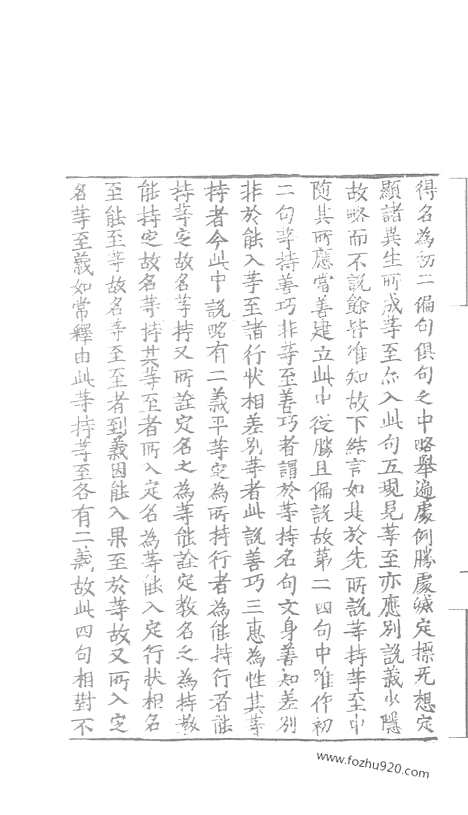 得名為初二偏句俱句之中略舉遍處例勝處滅定攝无想定
顯諸異生所成等至亦入此句五現見等至亦應別說義少隱
故略而不說餘皆准知故下結言如是於先所說等持等至中
随其所應當善建立此中從勝且偏說故第二四句中唯作初
二句等持善巧非等至善巧者謂於等持名句文身善知差別
非於能入等至諸行狀相差別等者此說善巧三惠為性其等
持者今此中說略有二義平等定為所持行者為能持行者能
持等定故名等持又所詮定名之為等能詮定教名之為持教
能持定故名等持其等至者所入定名為等能入定行狀相名
至能至等故名等至至者到義因能入果至於等故又所入定
名等至義如常釋由此等持等至各有二義故此四句相對不
www.fozhu920.com